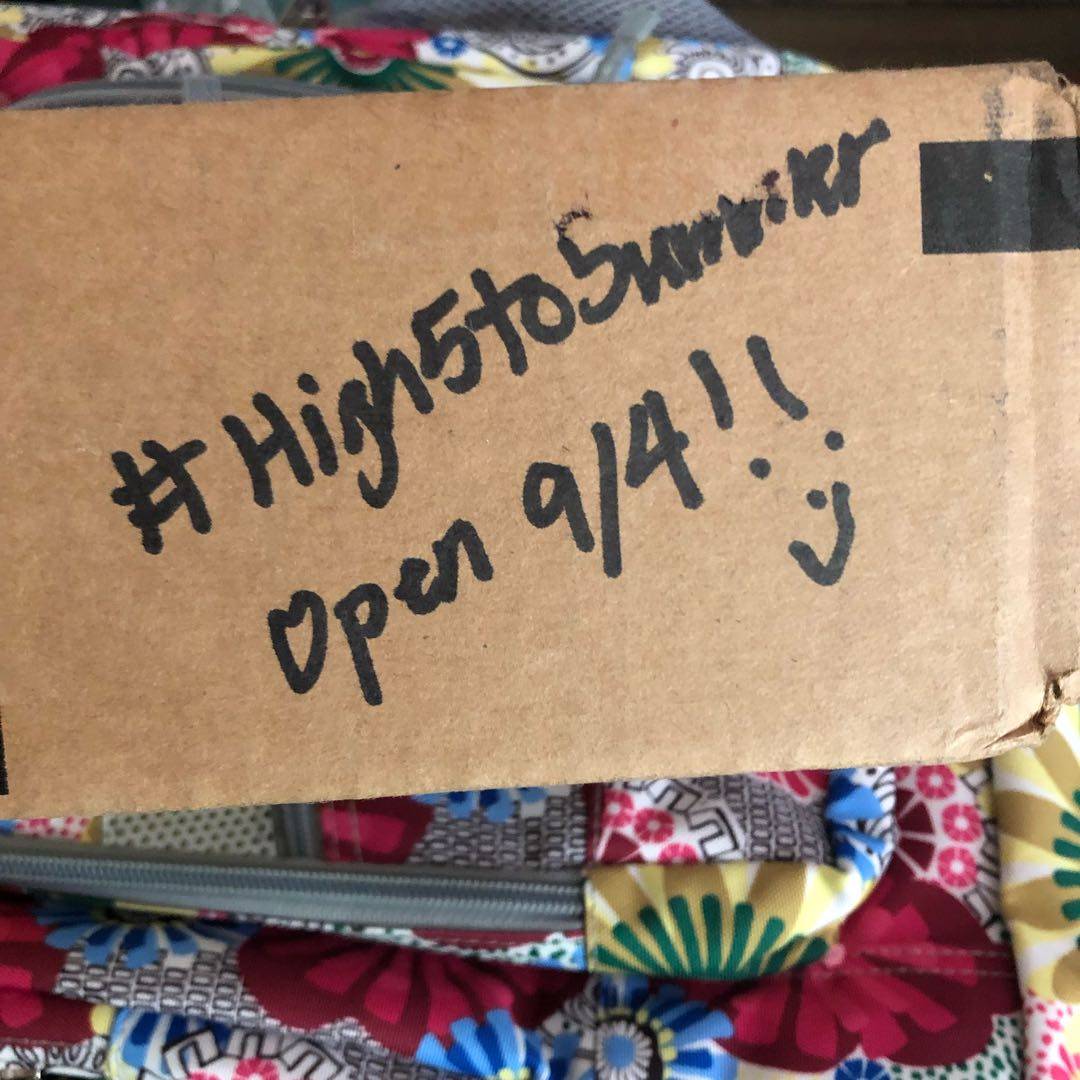 #High5toSummikr
Open 9/4!! :)